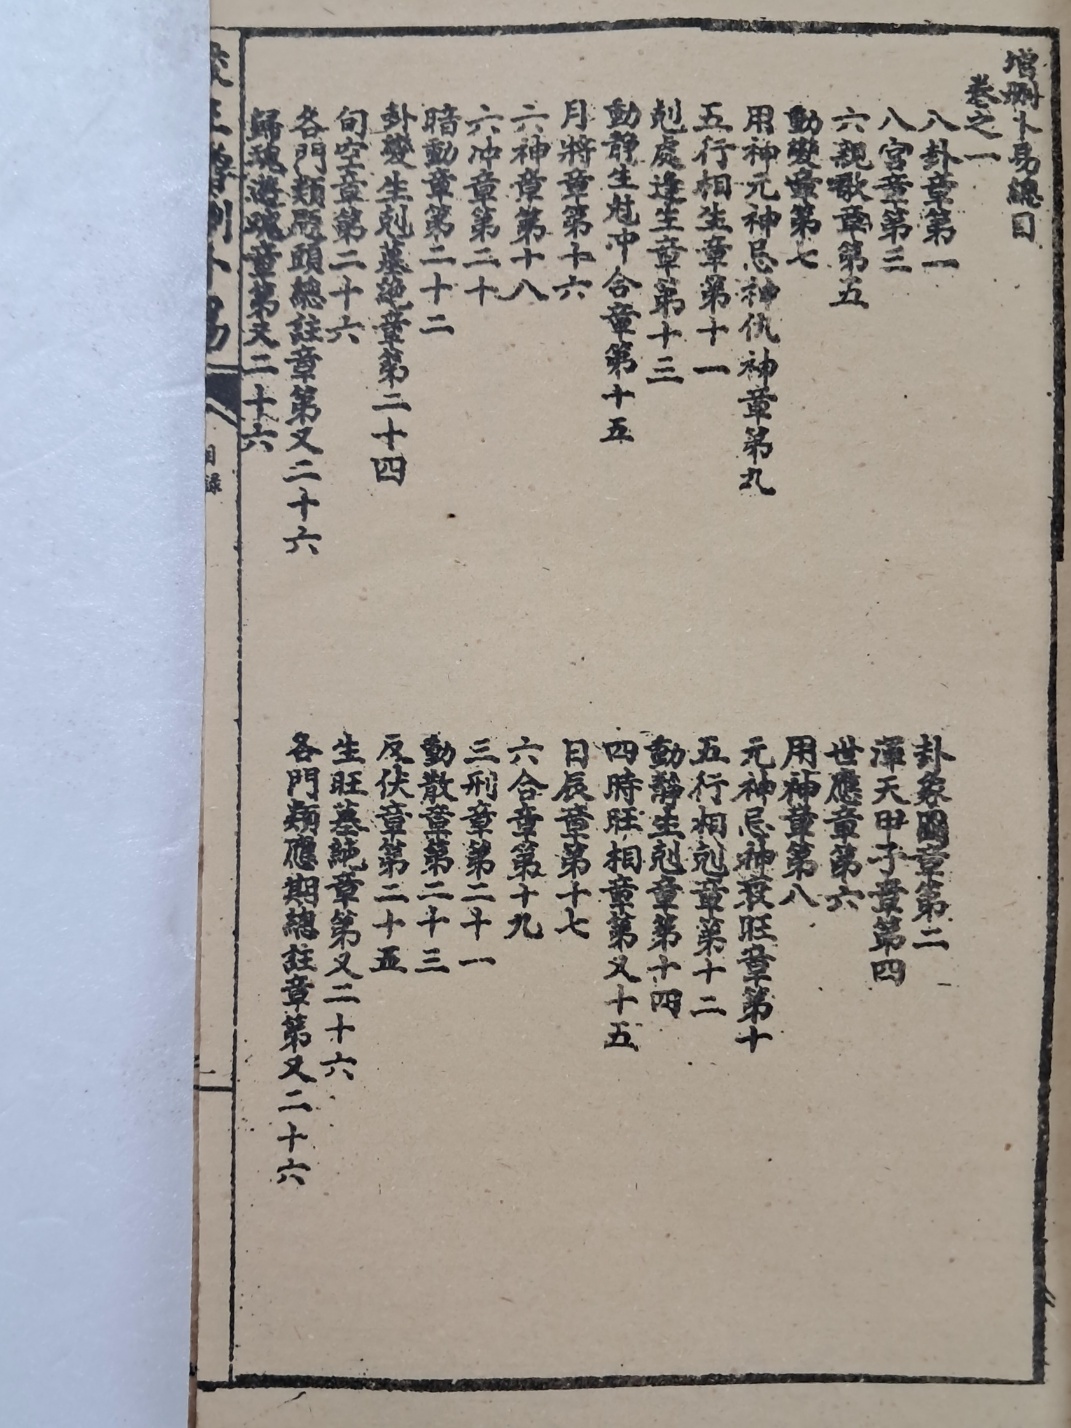 增刪卜易總目
卷之一
八卦章第一
卦象圖章第二
八宮章第三
渾天甲子章第四
六親歌章第五
世應章第六
動變章第七
用神章第八
用神元神忌神仇神章第九
元神忌神衰旺章第十
五行相生章第十一
五行相剋章第十二
剋處逢生章第十三
動靜生剋章第十四
動靜生尅冲合章第十五
四時旺相章第又十五
月將章第十六
日辰章第十七
六神章第十八
六合章第十九
六冲章第二十
三刑章第二十一
暗動章第二十二
動散章第二十三
卦變生剋墓絶章第二十四
反伏章第二十五
旬空章第二十六
生旺墓絶章第又二十六
各門類題頭總註章第又二十六
各門類應期總註章第又二十六
歸魂遊魂章第又二十六
增刪卜易
目錄
二